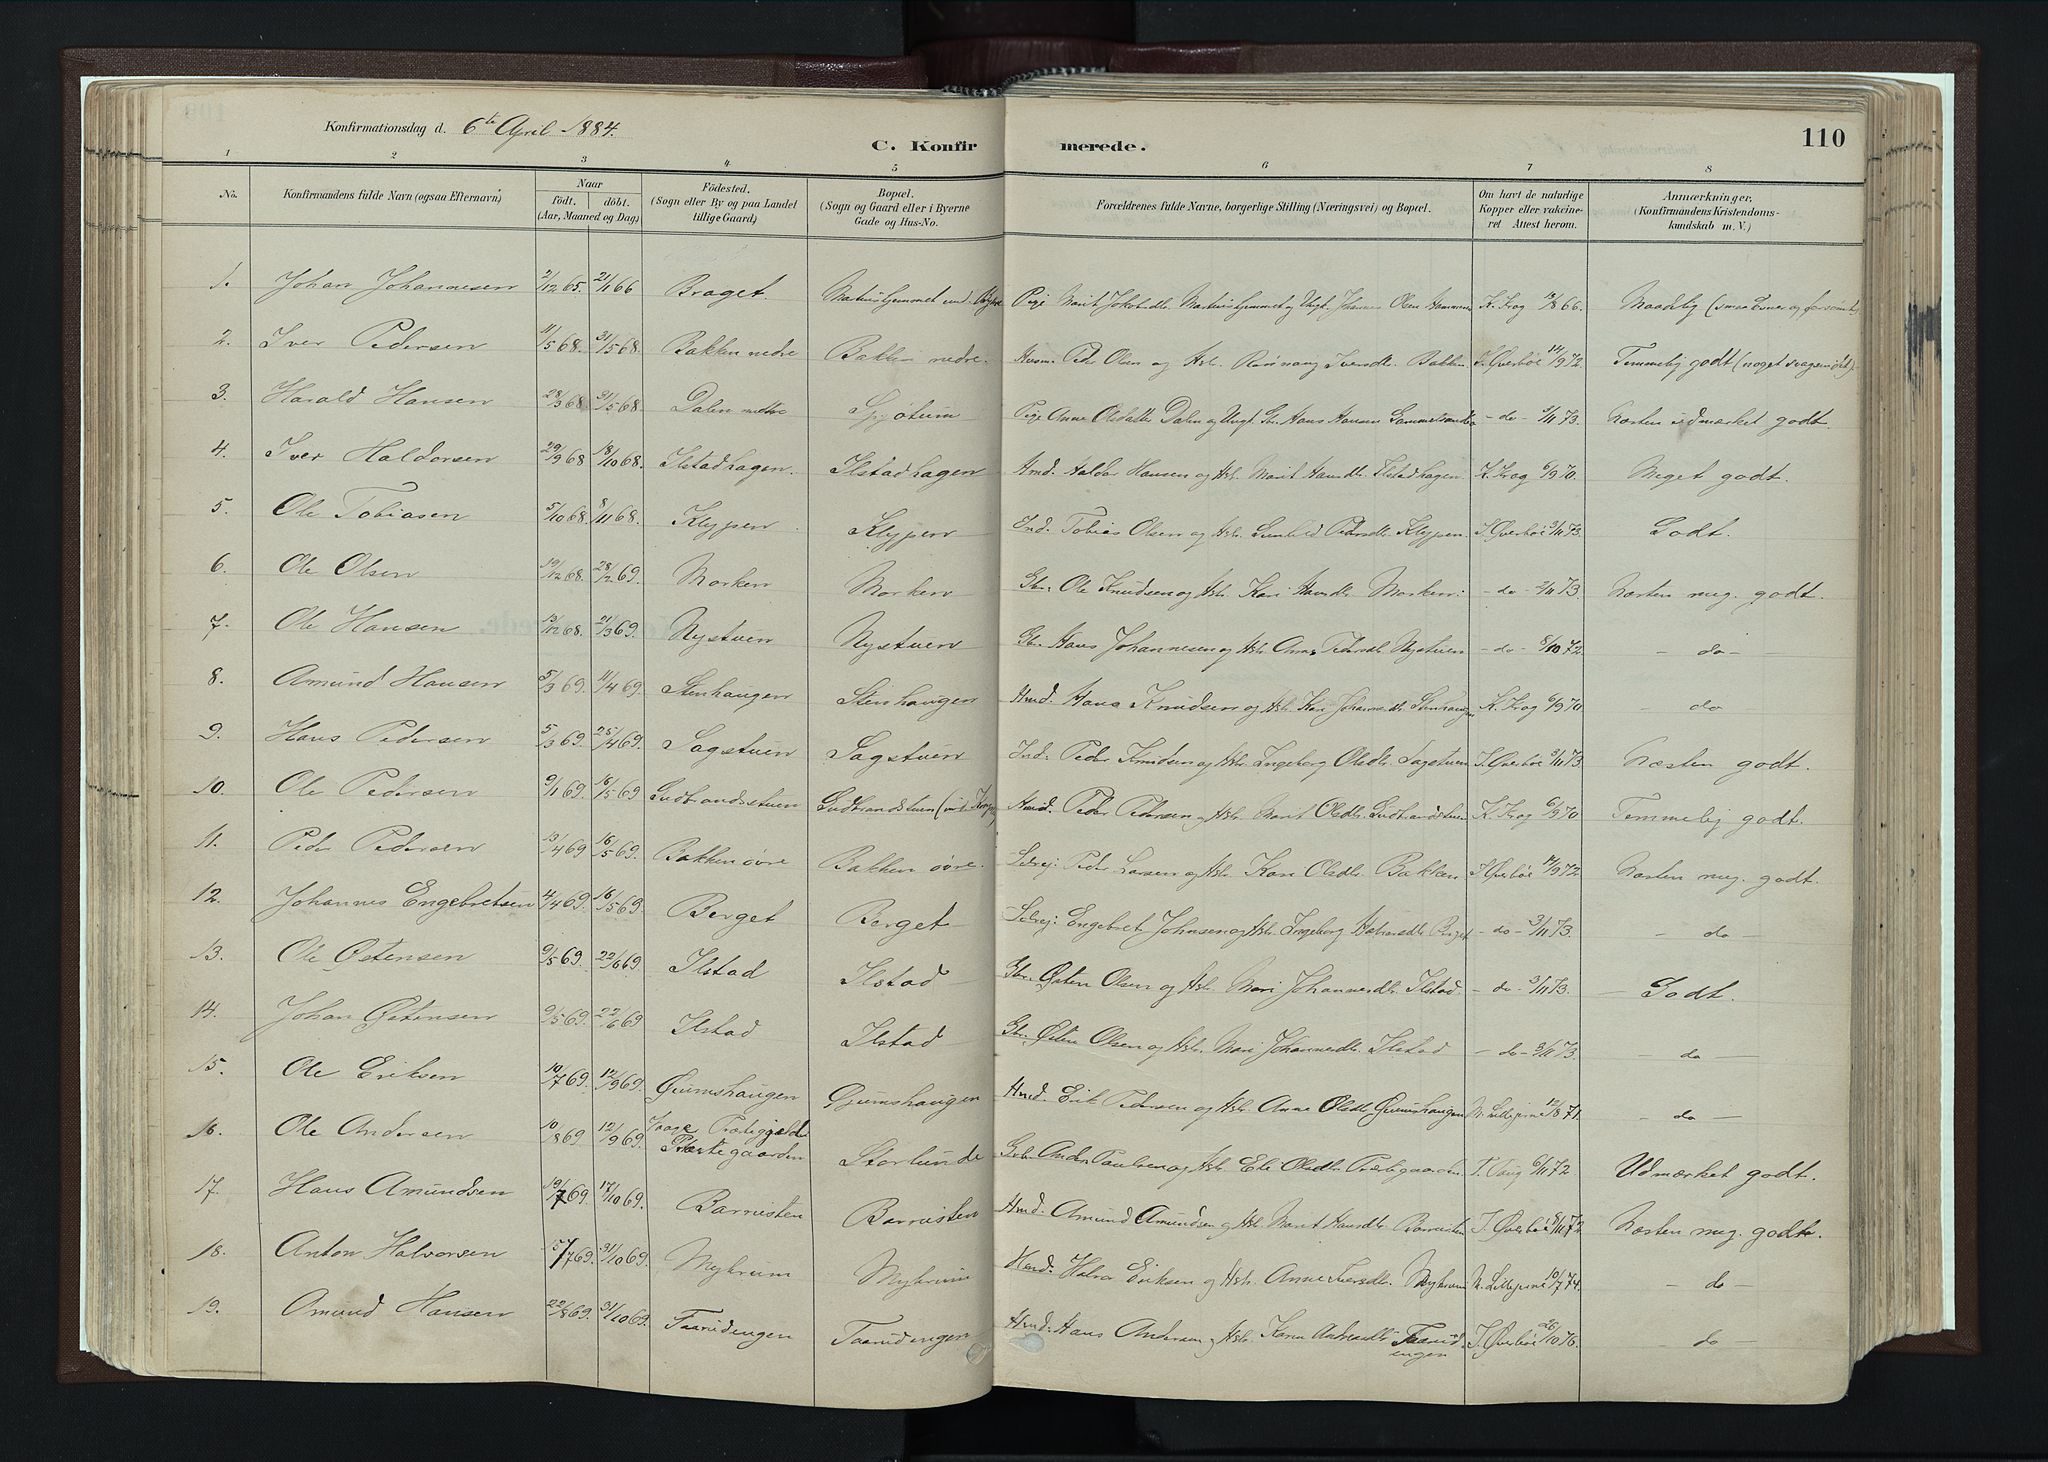 Konfirmationsdag d. 6te April 1884.
C. Konfirmerede.
110
1 2 3 4 5 6 7 8
No. Konfirmandens fulde Navn (ogsaa Efternavn) Naar födt. döbt. (Aar, Maaned og Dag) Födested. (Sogn eller By og paa Landet tillige Gaard) Bopæl. (Sogn og Gaard eller i Byerne Gade og Hus-No. Forældrenes fulde Navne, borgerlige Stilling (Næringsvei) og Bopæl. Om havt de naturlige Kopper eller vakcineret Attest herom. Anmærkninger, (Konfirmandens Kristendomskundskab m. V.)
1. Johan Johannesen 2/12 65. 21/1 66 Braget. Johannes Olsen K. Krog 10/8 66. Maadelig
2. Iver Pedersen 11/5 68. 31/5 68. Bakken nedre Bakken nedre. Husm. Peder Olsen og Hst. Iversdtr. Bakken J. Qverböe 14/9 72. Temmelig godt (noget svagsindt).
3. Harald Hansen 28/3 68 31/5 68. Dalen nedre Pige Anne Olsdatter Dalen og Ungk. Hans Hansen - do - 3/11 73. Næsten udmærket godt.
4. Iver Haldorsen 29/9 68 18/10 68. Ilstadhagen. Ilstadhagen Hmd. Haldor Hansen og Hst. Marit Hansdtr. Ilstadhagen. K. Krog 6/9 70. Meget godt.
5. Ole Tobiasen 5/10 68. 8/11 68. Klypen Klypen Ind. Tobias Olsen og Hst. Pedersdtr. Klypen J. Qverböe 3/11 73. Godt.
6. Ole Olsen 19/12 68. 28/2 69. Morken Morken Gbr. Ole Knudsen og Hst. Kari Hansdtr. Morken. - do - 2/11 73. Næsten meg. godt.
7. Ole Hansen 13/12 68. 21/3 69. Nystuen Nystuen Gbr. Hans Johannesen og Hst. Anne Pedersdtr. Nystuen - do - 8/10 72. - do -
8. Amund Hansen 5/3 69. 11/4 69. Stenhaugen Stenhaugen Hmd. Hans Knudsen og Hst. Kari Johannesdtr. Stenhaugen K. Krog 6/9 70 - do
9. Hans Pedersen 5/3 69. 25/4 69. Sagstuen Sagstuen Ind. Peder Knudsen og Hst. Ingeborg Olsdtr. Sagstuen J. Qverböe 3/11 73. Næsten godt.
10. Ole Pedersen 9/1 69. 16/5 69 Gudbrandsstuen Gudbrandstuen Hmd. Peder Pedersen og Hst. Marit Olsdtr. Gudbrandstuen K. Krog 6/9 70. Temmelig godt.
11. Peder Pedersen 13/4 69 16/5 69. Bakken øvre Bakken øvre. Selvej: Peder Larsen og Hst. Kari Olsdtr. Bakken J. Qverböe 14/9 72. Næsten meg. godt.
12. Johannes Engebretsen 4/4 69. 16/5 69 Berget Berget Selvej: Engebret Johnsen og Hst. Ingeborg Halvorsdtr. Berget - do - 3/11 73. - do -
13. Ole Østensen 9/5 69. 22/6 69 Ilstad Ilstad Gbr. Østen Olsen og Hst. Mari Johannesdtr. Ilstad. - do - 3/11 73. - Godt.
14. Johan Østensen 9/5 69. 22/6 69 Ilstad Ilstad Gbr. Østen Olsen og Hst. Mari Johannesdtr. Ilstad - do - 3/11 73. - do -
15. Ole Eriksen 10/7 69. 12/9 69. Hmd. Erik Pedersen og Hst. Anne Olsdtr. N. Lillegerne 12/8 71. - do -
16. Ole Andersen 10/8 69 12/9 69. Vaage Præstegjeld Præstegaarden Storlunde Paulsen og Hst. Olsdtr. Præstegaarden 6/11 72 Udmærket godt.
17. Hans Amundsen 19/7 69. 17/10 69. Barrusten Barrusten Hmd. Amund Amundsen og Hst. Marit Hansdtr. Barrusten J. Qverböe 8/11 72 Næsten meg. godt.
18. Anton Halvorsen 15/7 69. 31/10 69. Myhrum Myhrum Hmd. Halvor Eriksen og Hst. Anne Iversdtr. Myhrum N. Lillegerne 10/7 74. - do -
19. Amund Hansen 22/8 69. 31/10 69. Taarudengen Taarudengen Hmd. Hans Andersen og Hst. Karen Andreasdtr. Taarudengen J. Qverböe 26/10 76. - do -